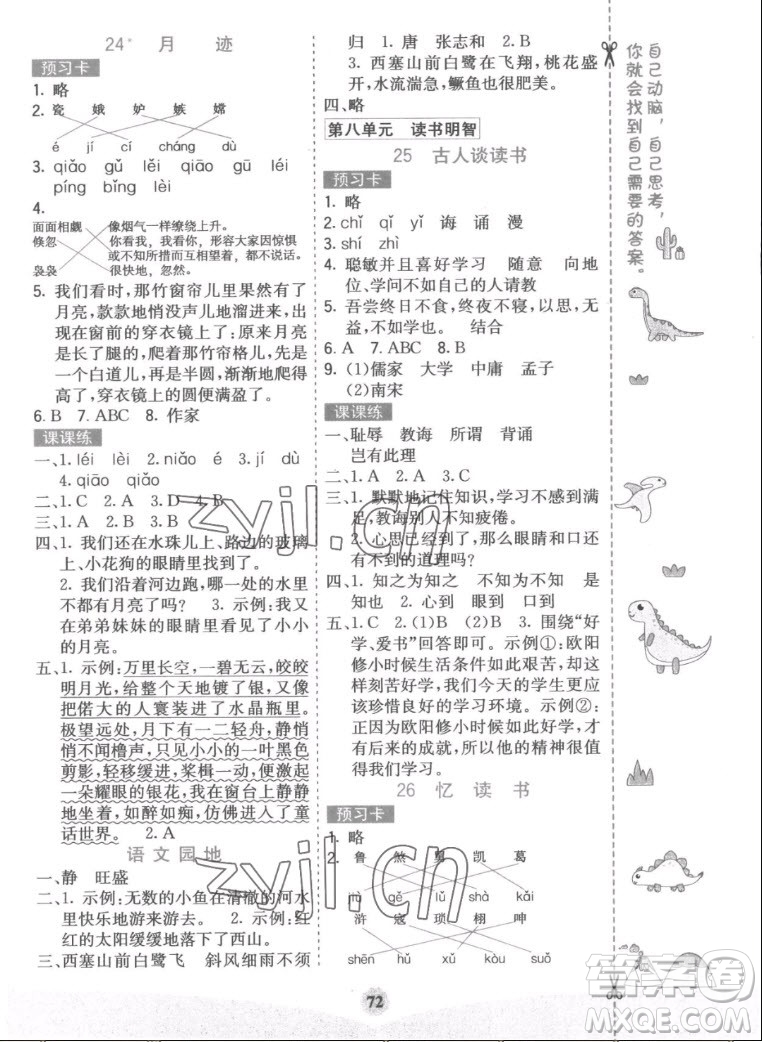 24* 月 迹
预习卡
1. 略
2. 瓷 娥 妒 嫉 嫦
é jí cí cháng dù
3. qiǎo gǔ lěi qiāo gū léi
píng bǐng lèi
4.
面面相觑 像烟气一样缭绕上升。
倏忽 你看我,我看你,形容大家因惊惧
或不知所措而互相望着。
袅袅 很快地,忽然。
5. 我们看时,那竹窗帘儿里果然有了
月亮,款款地悄没声儿地溜进来,
出现在窗前的穿衣镜上了:原来月亮
是长了腿的,爬着那竹帘格儿,先是
一个白道儿,再是半圆,渐渐地爬得
高了,穿衣镜上的圆便满盈了。
6. B 7. ABC 8. 作家
课课练
一、1. léi lèi 2. niǎo é 3. jí dù
4. qiāo qiǎo
二、1. C 2. A 3. D 4. B
三、1. A 2. B 3. B
四、1. 我们还在水珠儿上、路边的玻璃
上、小花狗的眼睛里找到了。
2. 我们沿着河边跑,哪一处的水里
不都有月亮了吗? 3. 示例:我又
在弟弟妹妹的眼睛里看到小小的
的月亮。
五、1. 示例:万里长空,一碧无云,皎皎
明月光,给整个天地镀了银,又像是
把偌大的人寰装进了水晶瓶里。
极望远处,月下有一二轻舟,静悄
悄不闻橹声,只见小小的一叶黑色
剪影,轻移缓进,桨楫一动,便激起
一朵耀眼的银花,我站在窗台上静静
地望着,如醉如痴,仿佛进入了童
话世界。 2. A
语文园地
一、静 旺盛
二、1. 示例:无数的小鱼在清澈的河水
里快乐地游来游去。 2. 示例:红
红的太阳缓缓地落下了西山。
三、西塞山前白鹭飞 斜风细雨不须
归 1. 唐 张志和 2. B
3. 西塞山前白鹭在飞翔,桃花盛
开,水流湍急,鳜鱼也很肥美。
四、略
第八单元 读书明智
25 古人谈读书
预习卡
1. 略
2. chǐ qǐ yǐ 诲 诵 漫
3. shí zhì
4. 聪敏并且喜好学习 随意 向地
位、学问不如自己的人请教
5. 吾尝终日不食,终夜不寝,以思,无
益,不如学也。 结合
6. A 7. ABC 8. ABC
9. (1)儒家 大学 中庸 孟子
(2)南宋
课课练
一、耻辱 教诲 所谓 背诵
岂有此理
二、1. A 2. A 3. C
三、1. 默默地记住知识,学习不感到满
足,教诲别人不知疲倦。
2. 心思已经到了,那么眼睛和口还
有不到的道理吗?
四、1. 知之为知之 不知为不知 是
知也 2. 心到 眼到 口到
五、1. C 2. (1)(2)B 3. 围绕“好
学、爱书”回答即可。示例①:欧阳
修小时候生活如此艰苦,却还是这
样刻苦好学,我们今天的学生更应
该珍惜良好的学习环境。示例②:
正因为欧阳修小时候好学,才有他
后来的成就,所以他的精神很值
得我们学习。
26 忆 读 书
预习卡
1. 略
2. 鲁 煞 舅 凯 葛
jiù gě lǔ shà kǎi
浒 寇 琐 栩 呻
shēn hǔ xǔ kòu suǒ
72
自己动脑,自己思考,
你就会找到自己需要的答案。
zyjl.cn
zyjl.cn
答案圈
MXQE.COM